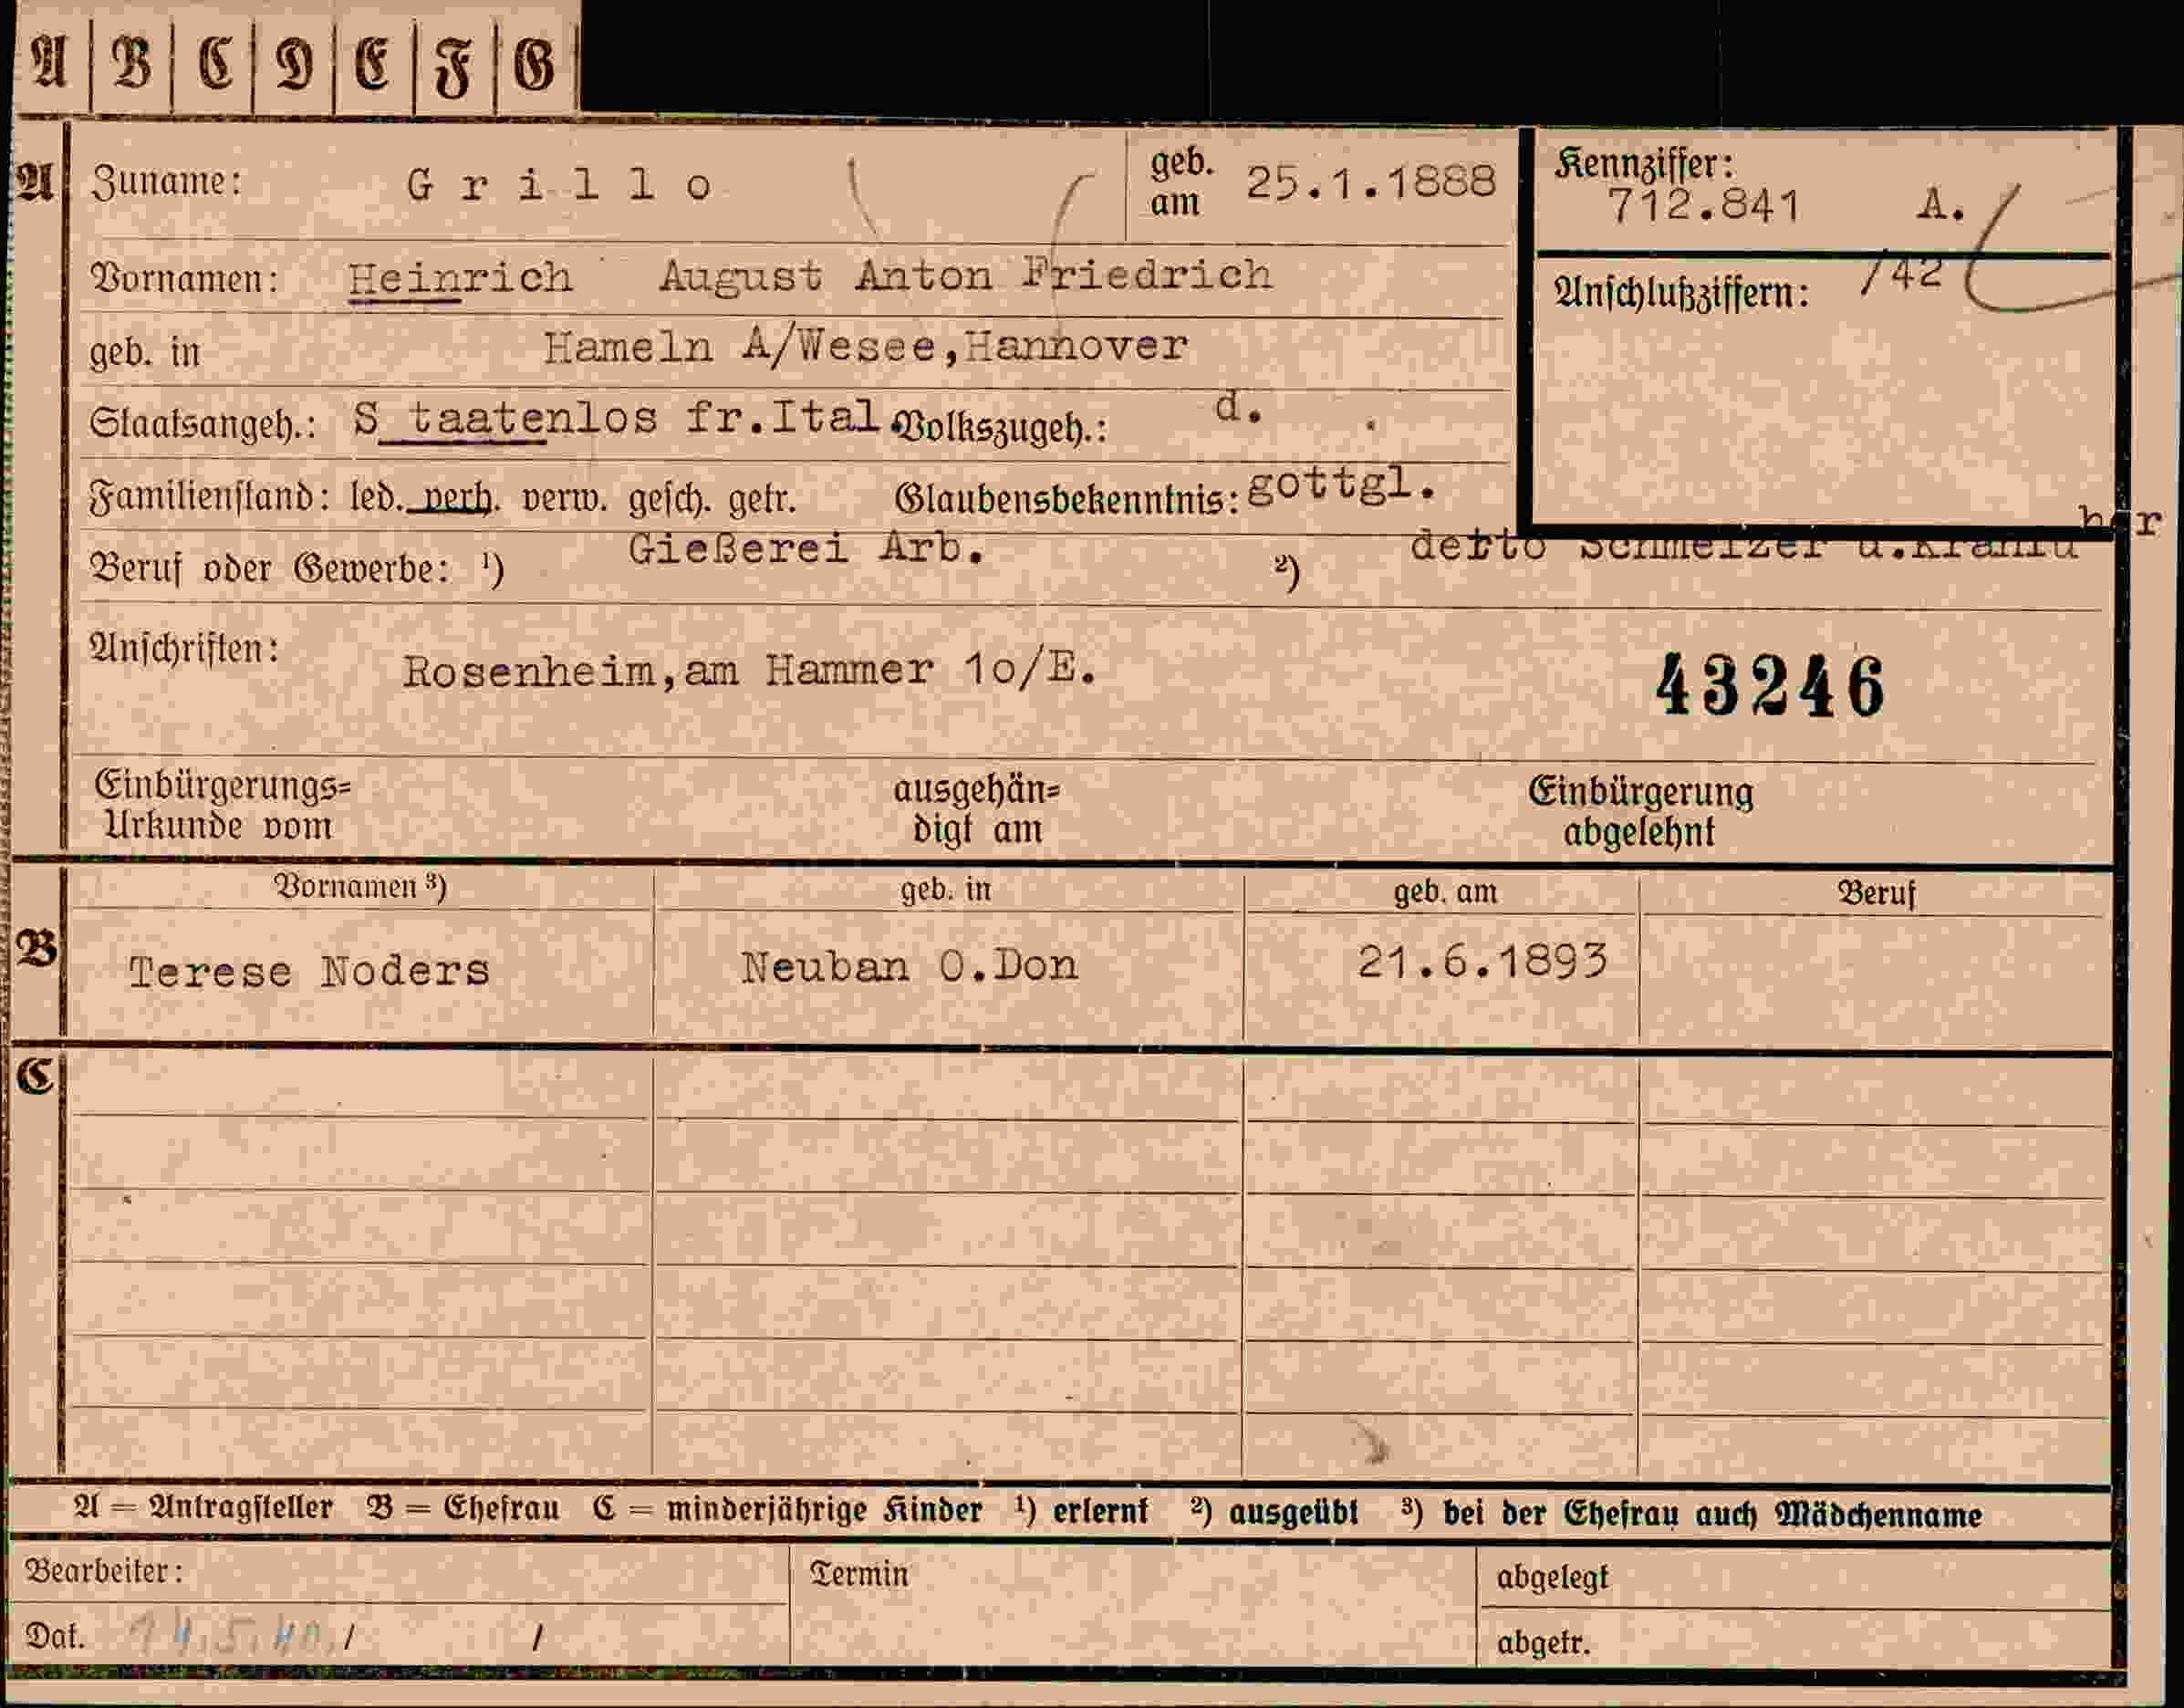 A B C D E F G
A Zuname: Grillo geb. am 25.1.1888
Kennziffer: 712.841 A.
Vornamen: Heinrich August Anton Friedrich
Anschlußziffern: /42
geb. in Hameln A/Wesee,Hannover
Staatsangeh.: S taatenlos fr.Ital. Volkszugeh.: d.
Familienstand: led. verh. verw. gesch. getr. Glaubensbekenntnis: gottgl.
Beruf oder Gewerbe: ¹) Gießerei Arb. ²) detto Schmelzer u.
Anschriften: Rosenheim,am Hammer 1o/E. 43246
Einbürgerungs= Urkunde vom ausgehän= digt am Einbürgerung abgelehnt
B Vornamen ³) geb. in geb. am Beruf
Terese Noders Neuban O.Don 21.6.1893
C
A = Antragsteller B = Ehefrau C = minderjährige Kinder ¹) erlernt ²) ausgeübt ³) bei der Ehefrau auch Mädchenname
Bearbeiter: Termin abgelegt
Dat. 14.5.40. / / abgetr.